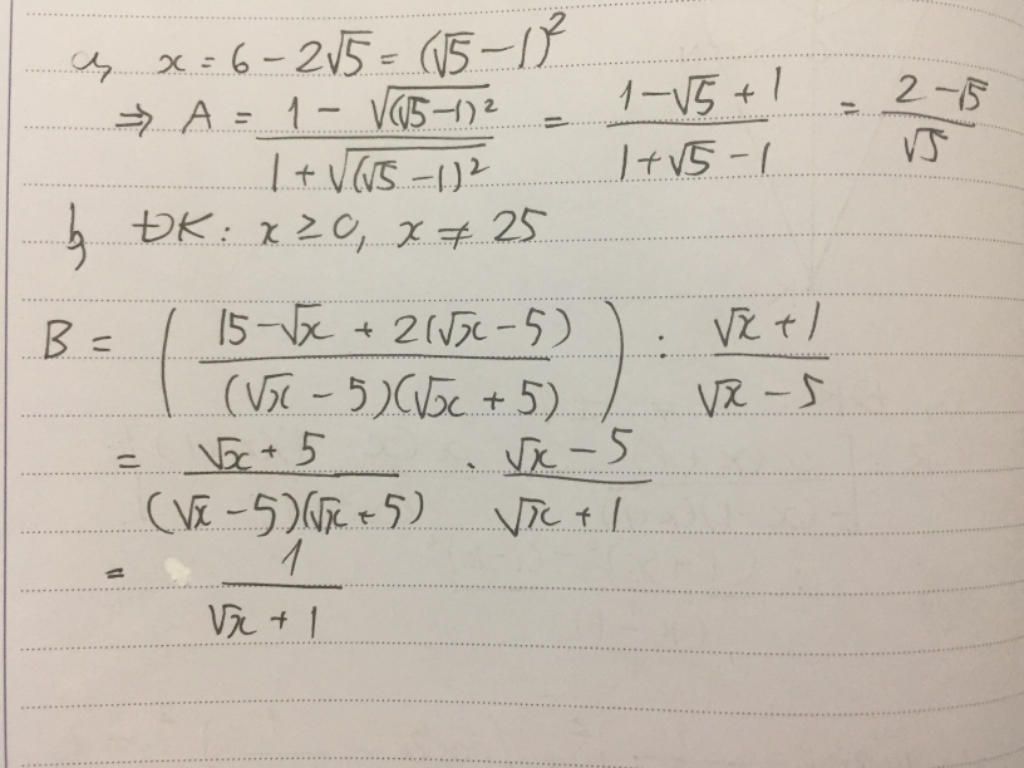 a, x = 6 - 2√5 = (√5 - 1)²
⇒ A = (1 - √((√5-1)²))/(1 + √((√5-1)²)) = (1-√5+1)/(1+√5-1) = (2-√5)/√5
b, ĐK: x ≥ 0, x ≠ 25
B = ((15-√x + 2(√x-5))/((√x-5)(√x+5))) : (√x+1)/(√x-5)
= (√x+5)/((√x-5)(√x+5)) . (√x-5)/(√x+1)
= 1/(√x+1)